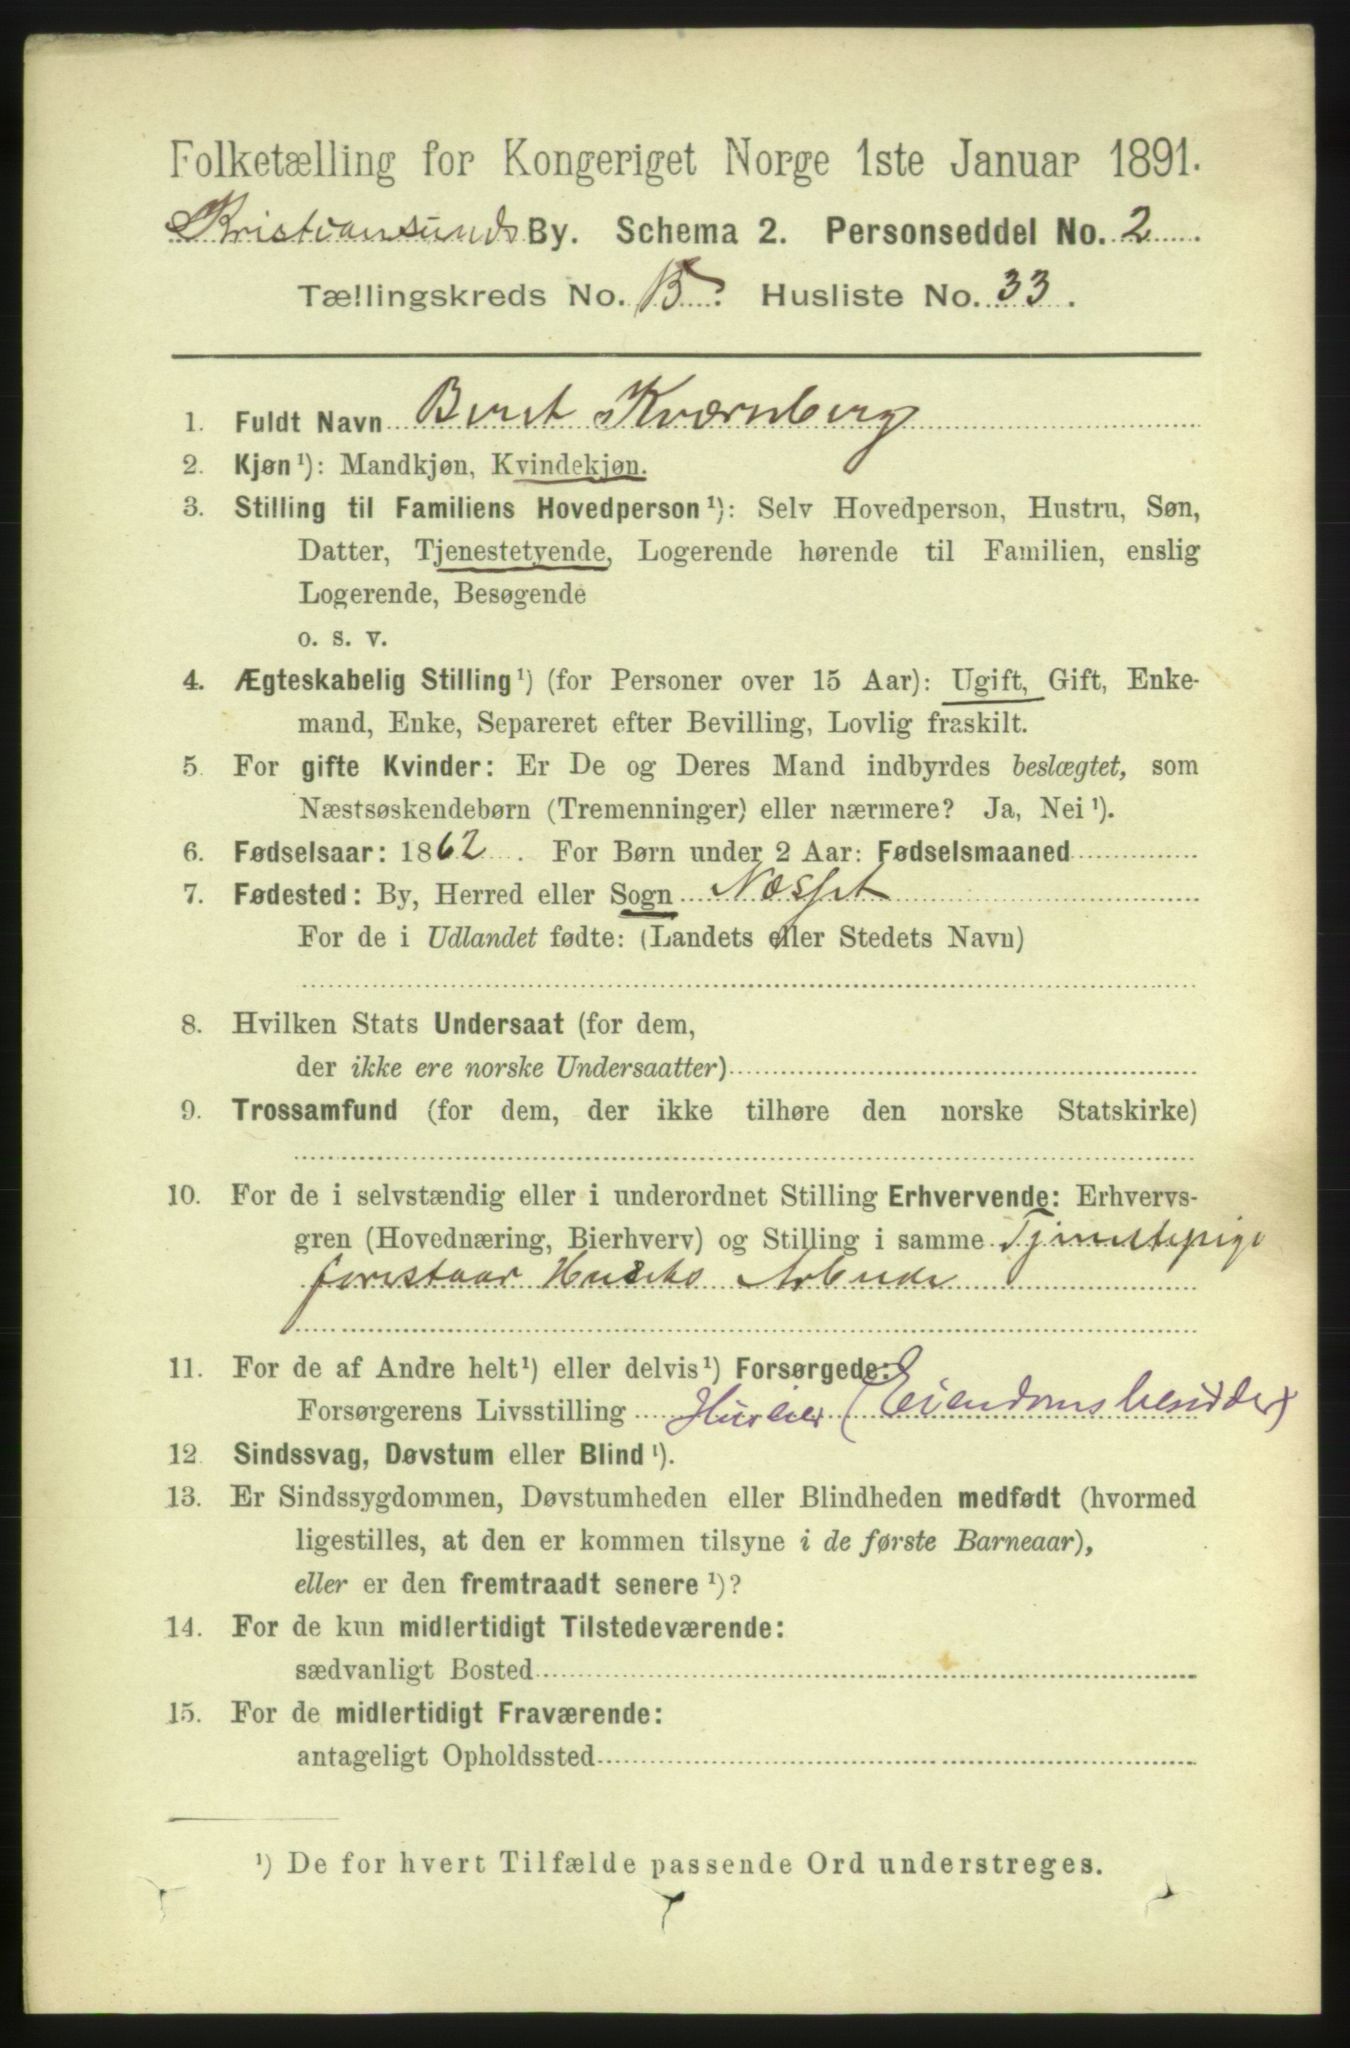 Folketælling for Kongeriget Norge 1ste Januar 1891.
Kristiansunds By. Schema 2. Personseddel No. 2
Tællingskreds No. B. Husliste No. 33.
1. Fuldt Navn Beret Kværnberg
2. Kjøn¹): Mandkjøn, Kvindekjøn.
3. Stilling til Familiens Hovedperson¹): Selv Hovedperson, Hustru, Søn,
Datter, Tjenestetyende, Logerende hørende til Familien, enslig
Logerende, Besøgende
o. s. v.
4. Ægteskabelig Stilling¹) (for Personer over 15 Aar): Ugift, Gift, Enke-
mand, Enke, Separeret efter Bevilling, Lovlig fraskilt.
5. For gifte Kvinder: Er De og Deres Mand indbyrdes beslægtet, som
Næstsøskendebørn (Tremenninger) eller nærmere? Ja, Nei¹).
6. Fødselsaar: 1862. For Børn under 2 Aar: Fødselsmaaned
7. Fødested: By, Herred eller Sogn Næsset
For de i Udlandet fødte: (Landets eller Stedets Navn)
8. Hvilken Stats Undersaat (for dem,
der ikke ere norske Undersaatter)
9. Trossamfund (for dem, der ikke tilhøre den norske Statskirke)
10. For de i selvstændig eller i underordnet Stilling Erhvervende: Erhvervs-
gren (Hovednæring, Bierhverv) og Stilling i samme Tjenestepige
forestaar Husets Arbeide
11. For de af Andre helt¹) eller delvis¹) Forsørgede:
Forsørgerens Livsstilling Huseier (Eiendomsbesidder)
12. Sindssvag, Døvstum eller Blind¹).
13. Er Sindssygdommen, Døvstumheden eller Blindheden medfødt (hvormed
ligestilles, at den er kommen tilsyne i de første Barneaar),
eller er den fremtraadt senere¹)?
14. For de kun midlertidigt Tilstedeværende:
sædvanligt Bosted
15. For de midlertidigt Fraværende:
antageligt Opholdssted
¹) De for hvert Tilfælde passende Ord understreges.